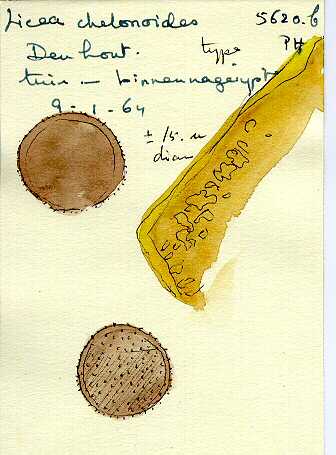 Licea chelonoides 5620.b
Den hout. type PH
tuin - binnennageijpt
9 - 1 - 64
± 15. u
diam